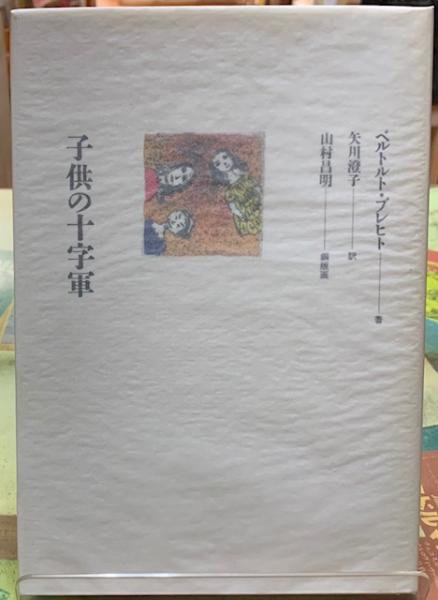 ベルトルト・ブレヒト――著
矢川澄子――訳
山村昌明――銅版画
子供の十字軍